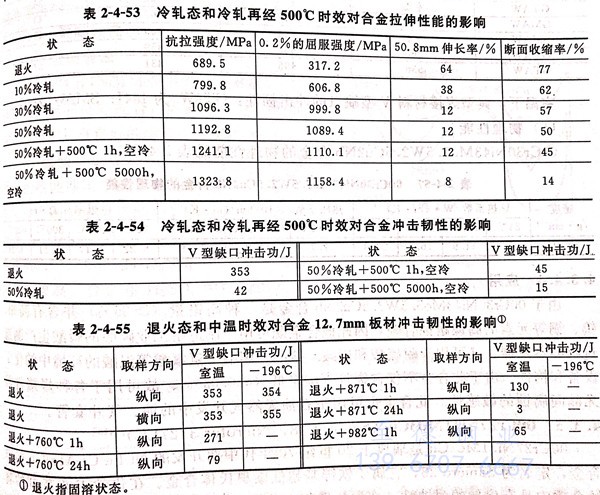 表 2-4-53 冷轧态和冷轧再经 500℃时效对合金拉伸性能的影响
状 态 抗拉强度/MPa 0.2%的屈服强度/MPa 50.8mm 伸长率/% 断面收缩率/%
退火 689.5 317.2 64 77
10%冷轧 799.8 606.8 38 62
30%冷轧 1096.3 999.8 12 57
50%冷轧 1192.8 1089.4 12 50
50%冷轧+500℃ 1h,空冷 1241.1 1110.1 12 45
50%冷轧+500℃ 5000h,
空冷 1323.8 1158.4 8 14
表 2-4-54 冷轧态和冷轧再经 500℃时效对合金冲击韧性的影响
状 态 V 型缺口冲击功/J 状 态 V 型缺口冲击功/J
退火 353 50%冷轧+500℃ 1h,空冷 45
50%冷轧 42 50%冷轧+500℃ 5000h,空冷 15
表 2-4-55 退火态和中温时效对合金 12.7mm 板材冲击韧性的影响①
状 态 取样方向 V 型缺口冲击功/J 状 态 取样方向 V 型缺口冲击功/J
室温 -196℃ 室温 -196℃
退火 纵向 353 354 退火+871℃ 1h 纵向 130 —
退火 横向 353 355 退火+871℃ 24h 纵向 3 —
退火+760℃ 1h 纵向 271 — 退火+982℃ 1h 纵向 65 —
退火+760℃ 24h 纵向 79 —
①退火指固溶状态。